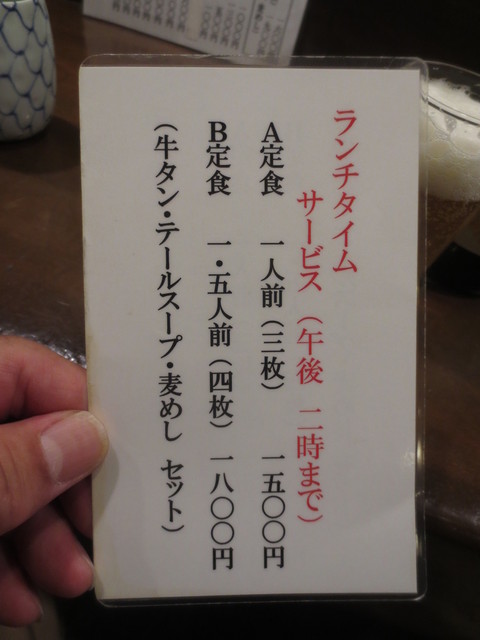 ランチタイム
サービス（午後 二時まで）
A定食 一人前（三枚） 一五〇〇円
B定食 一・五人前（四枚） 一八〇〇円
（牛タン・テールスープ・麦めし セット）